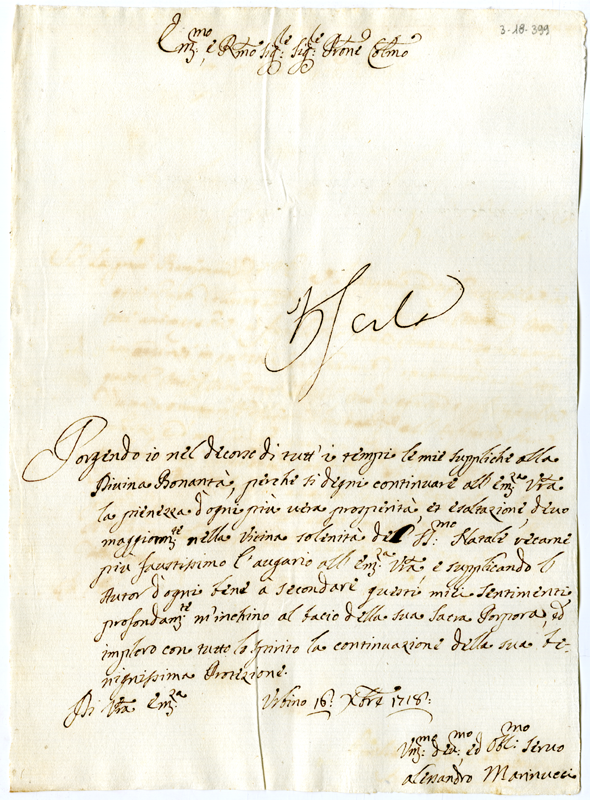 3-18-399
Em.mo e R.mo Sig.re Sig.re Prone Col.mo
Porgendo io nel decorso di tutt'i tempi le mie suppliche alla
Divina Bonantà, perche si degni continuare all'Em.za V'ra
la pienezza d'ogni più vera prosperità, et esaltazione, devo
maggiorm.te nella vicina solenità del SS.mo Natale recarne
più faustissimo l'augurio all'Em.za V'ra e supplicando l'
Autor d'ogni bene à secondare questi miei sentimenti,
profondam.te m'inchino al bacio della sua Sacra Porpora, ed
imploro con tutto lo spirito la continuazione della sua be-
nignissima Protezione.
Di V'ra Em.za
Urbino 16: Xbre 1718:
Um.mo dev.mo, ed Obl.mo Servo
Alessandro Marinucci